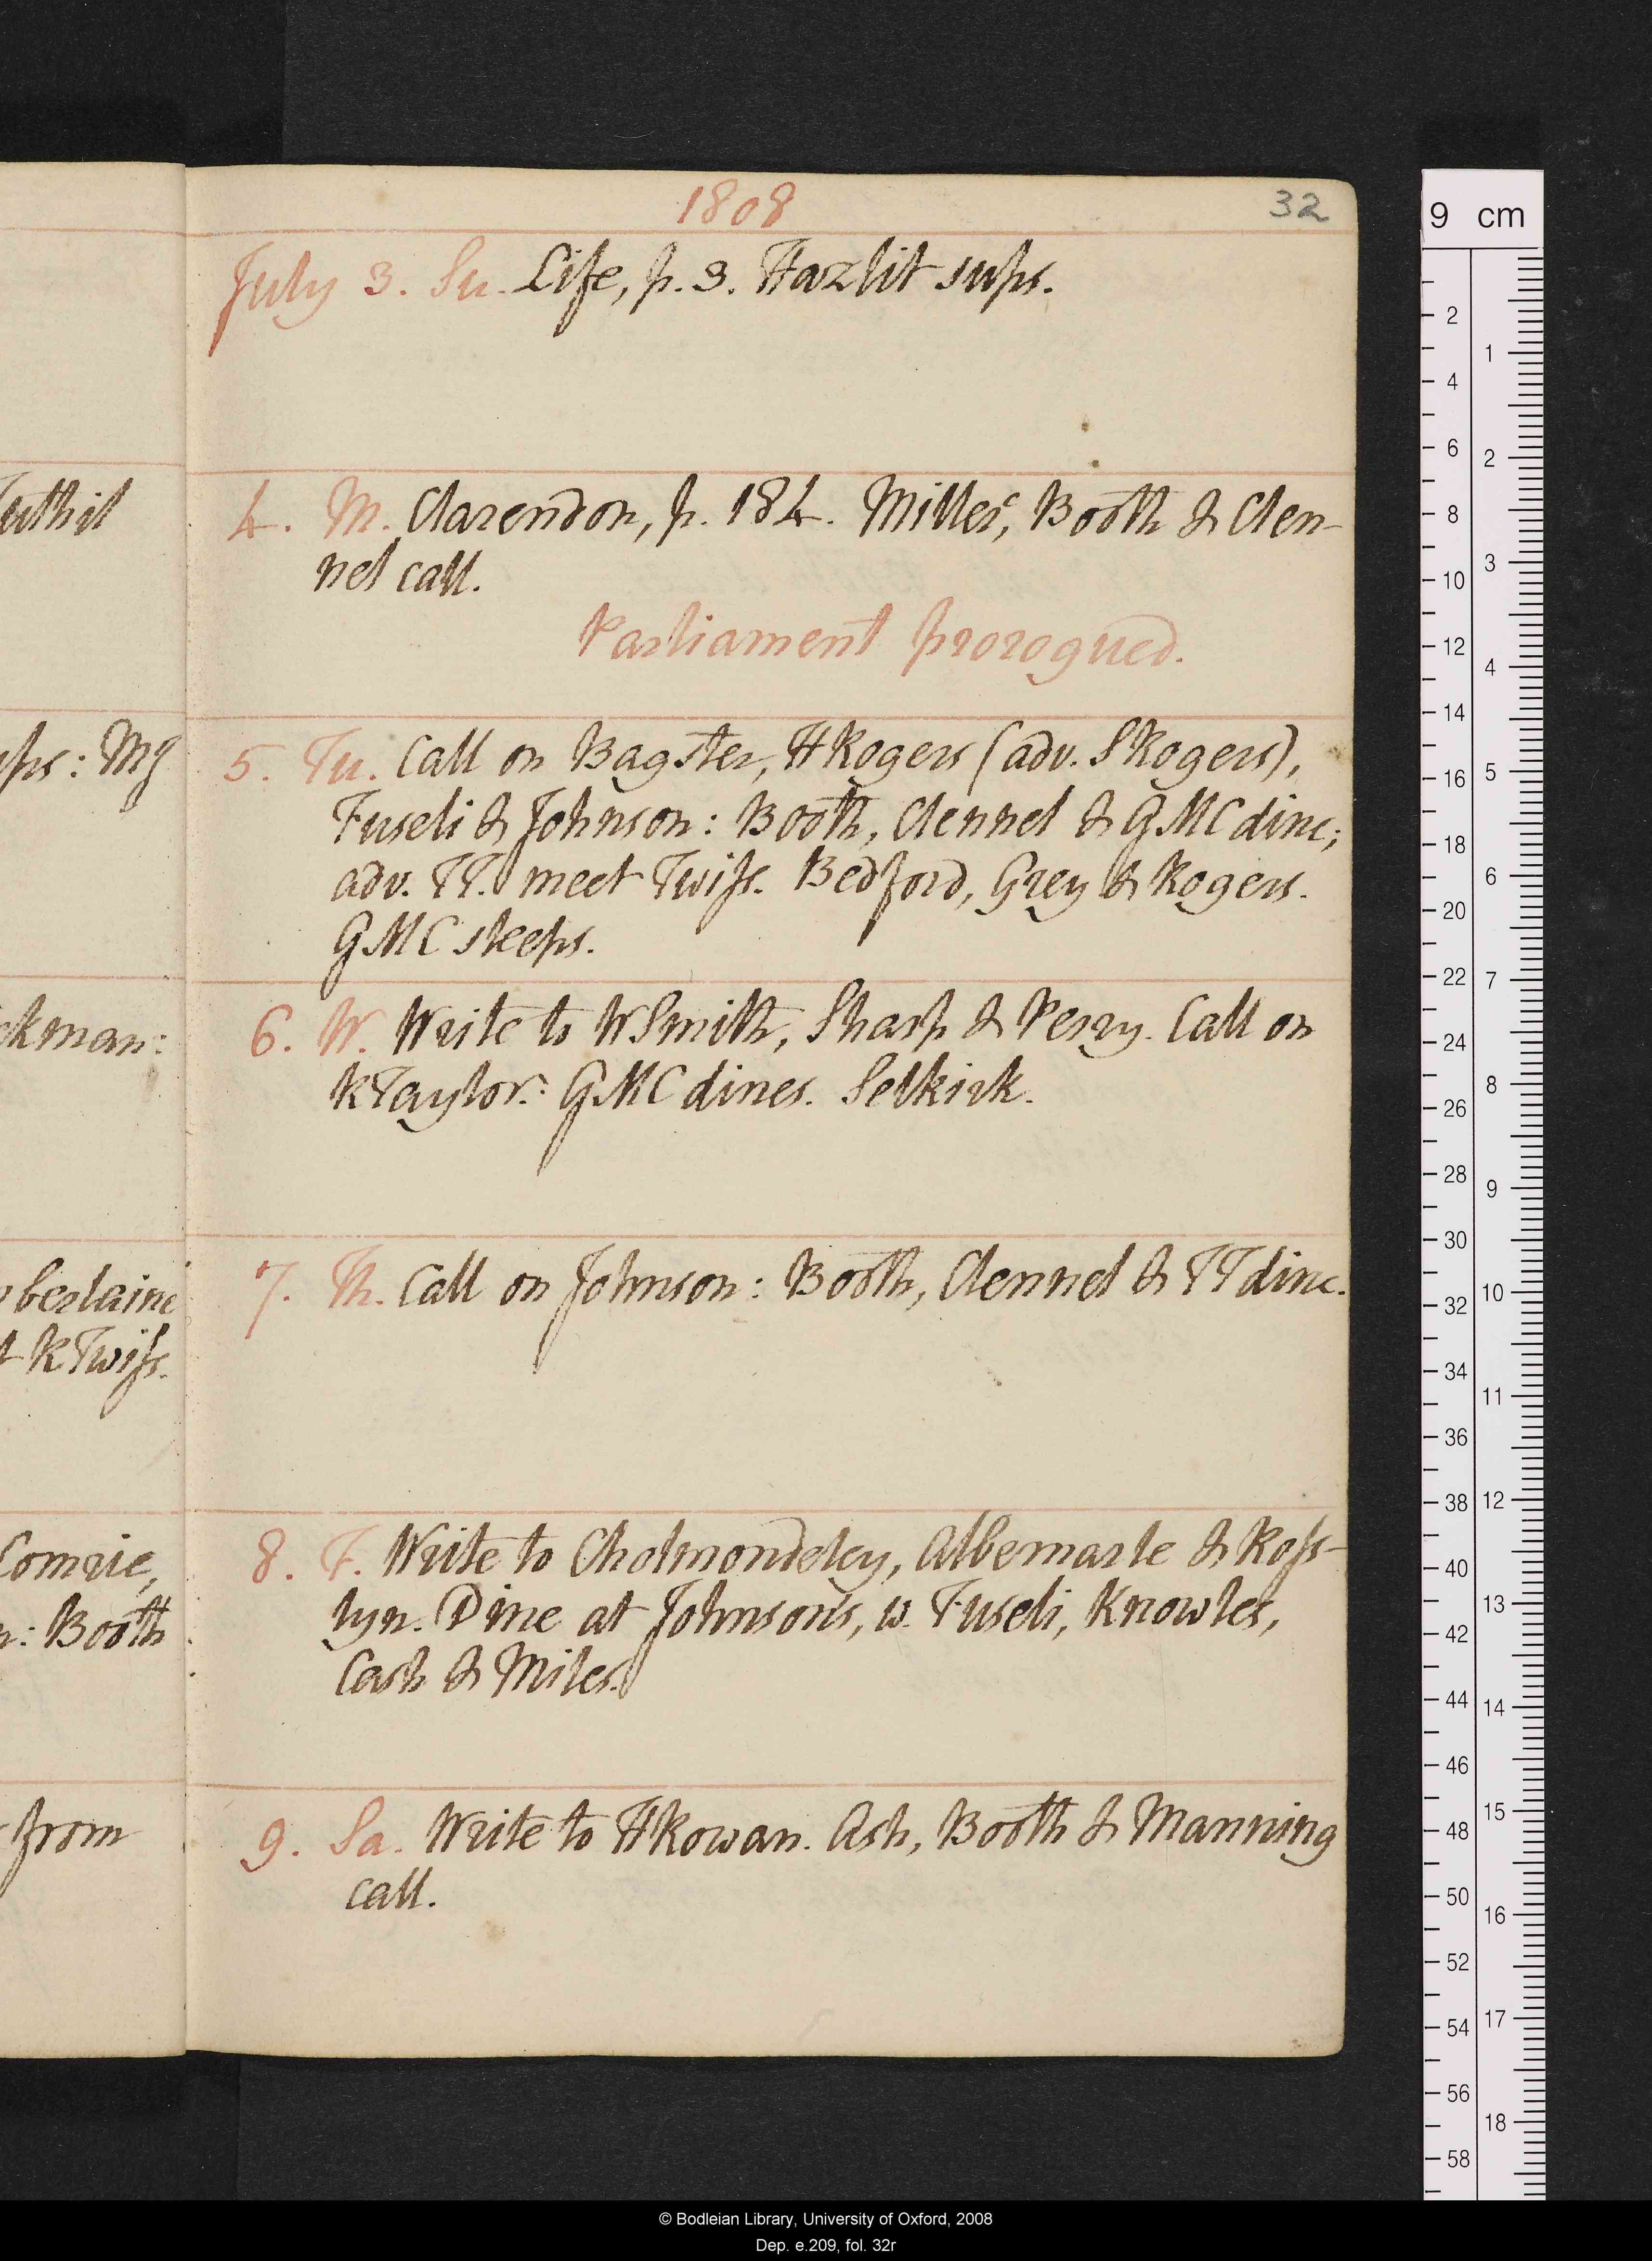 1808
32
July 3. Su. Life, p. 3. Hazlit sups.
4. M. Clarendon, p. 184. Miller, Booth & Clen-
nel call.
Parliament prorogued.
5. Tu. Call on Bagster, HRogers (adv. SRogers),
Fuseli & Johnson: Booth, Clennel & GMC dine;
adv. TT. meet Twiss. Bedford, Grey & Rogers.
GMC sleeps.
6. W. Write to WSmith, Sharp & Perry. Call on
RTaylor: GMC dines. Selkirk.
7. Th. Call on Johnson: Booth, Clennel & TT dine.
8. F. Write to Cholmondeley, Albemarle & Ross-
lyn. Dine at Johnson's, w. Fuseli, Knowles,
Cash & Miles.
9. Sa. Write to HRowan. Ash, Booth & Manning
call.
uthil
ps: MJ
kman:
berlaine
t RTwiss.
Comrie,
n: Booth
from
9 cm
2
4
6
8
10
12
14
16
18
20
22
24
26
28
30
32
34
36
38
40
42
44
46
48
50
52
54
56
58
1
2
3
4
5
6
7
8
9
10
11
12
13
14
15
16
17
18
© Bodleian Library, University of Oxford, 2008
Dep. e.209, fol. 32r